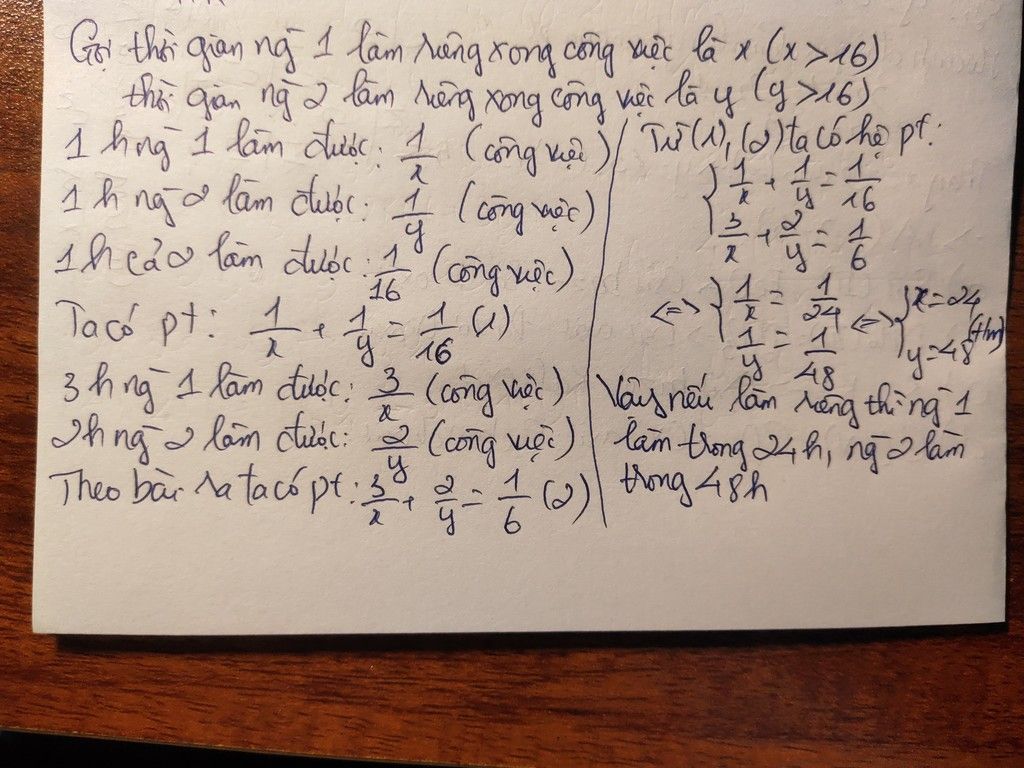 Gọi thời gian ng 1 làm riêng xong công việc là x (x>16)
thời gian ng 2 làm riêng xong công việc là y (y>16)
1 h ng 1 làm được: 1/x (công việc)
1 h ng 2 làm được: 1/y (công việc)
1 h cả 2 làm được: 1/16 (công việc)
Ta có pt: 1/x + 1/y = 1/16 (1)
3 h ng 1 làm được: 3/x (công việc)
2h ng 2 làm được: 2/y (công việc)
Theo bài ra ta có pt: 3/x + 2/y = 1/6 (2)
Từ (1), (2) ta có hệ pt:
{ 1/x + 1/y = 1/16
3/x + 2/y = 1/6
<=> { 1/x = 1/24 <=> { x = 24
1/y = 1/48 y = 48 (t/m)
Vậy nếu làm riêng thì ng 1
làm trong 24h, ng 2 làm
trong 48h